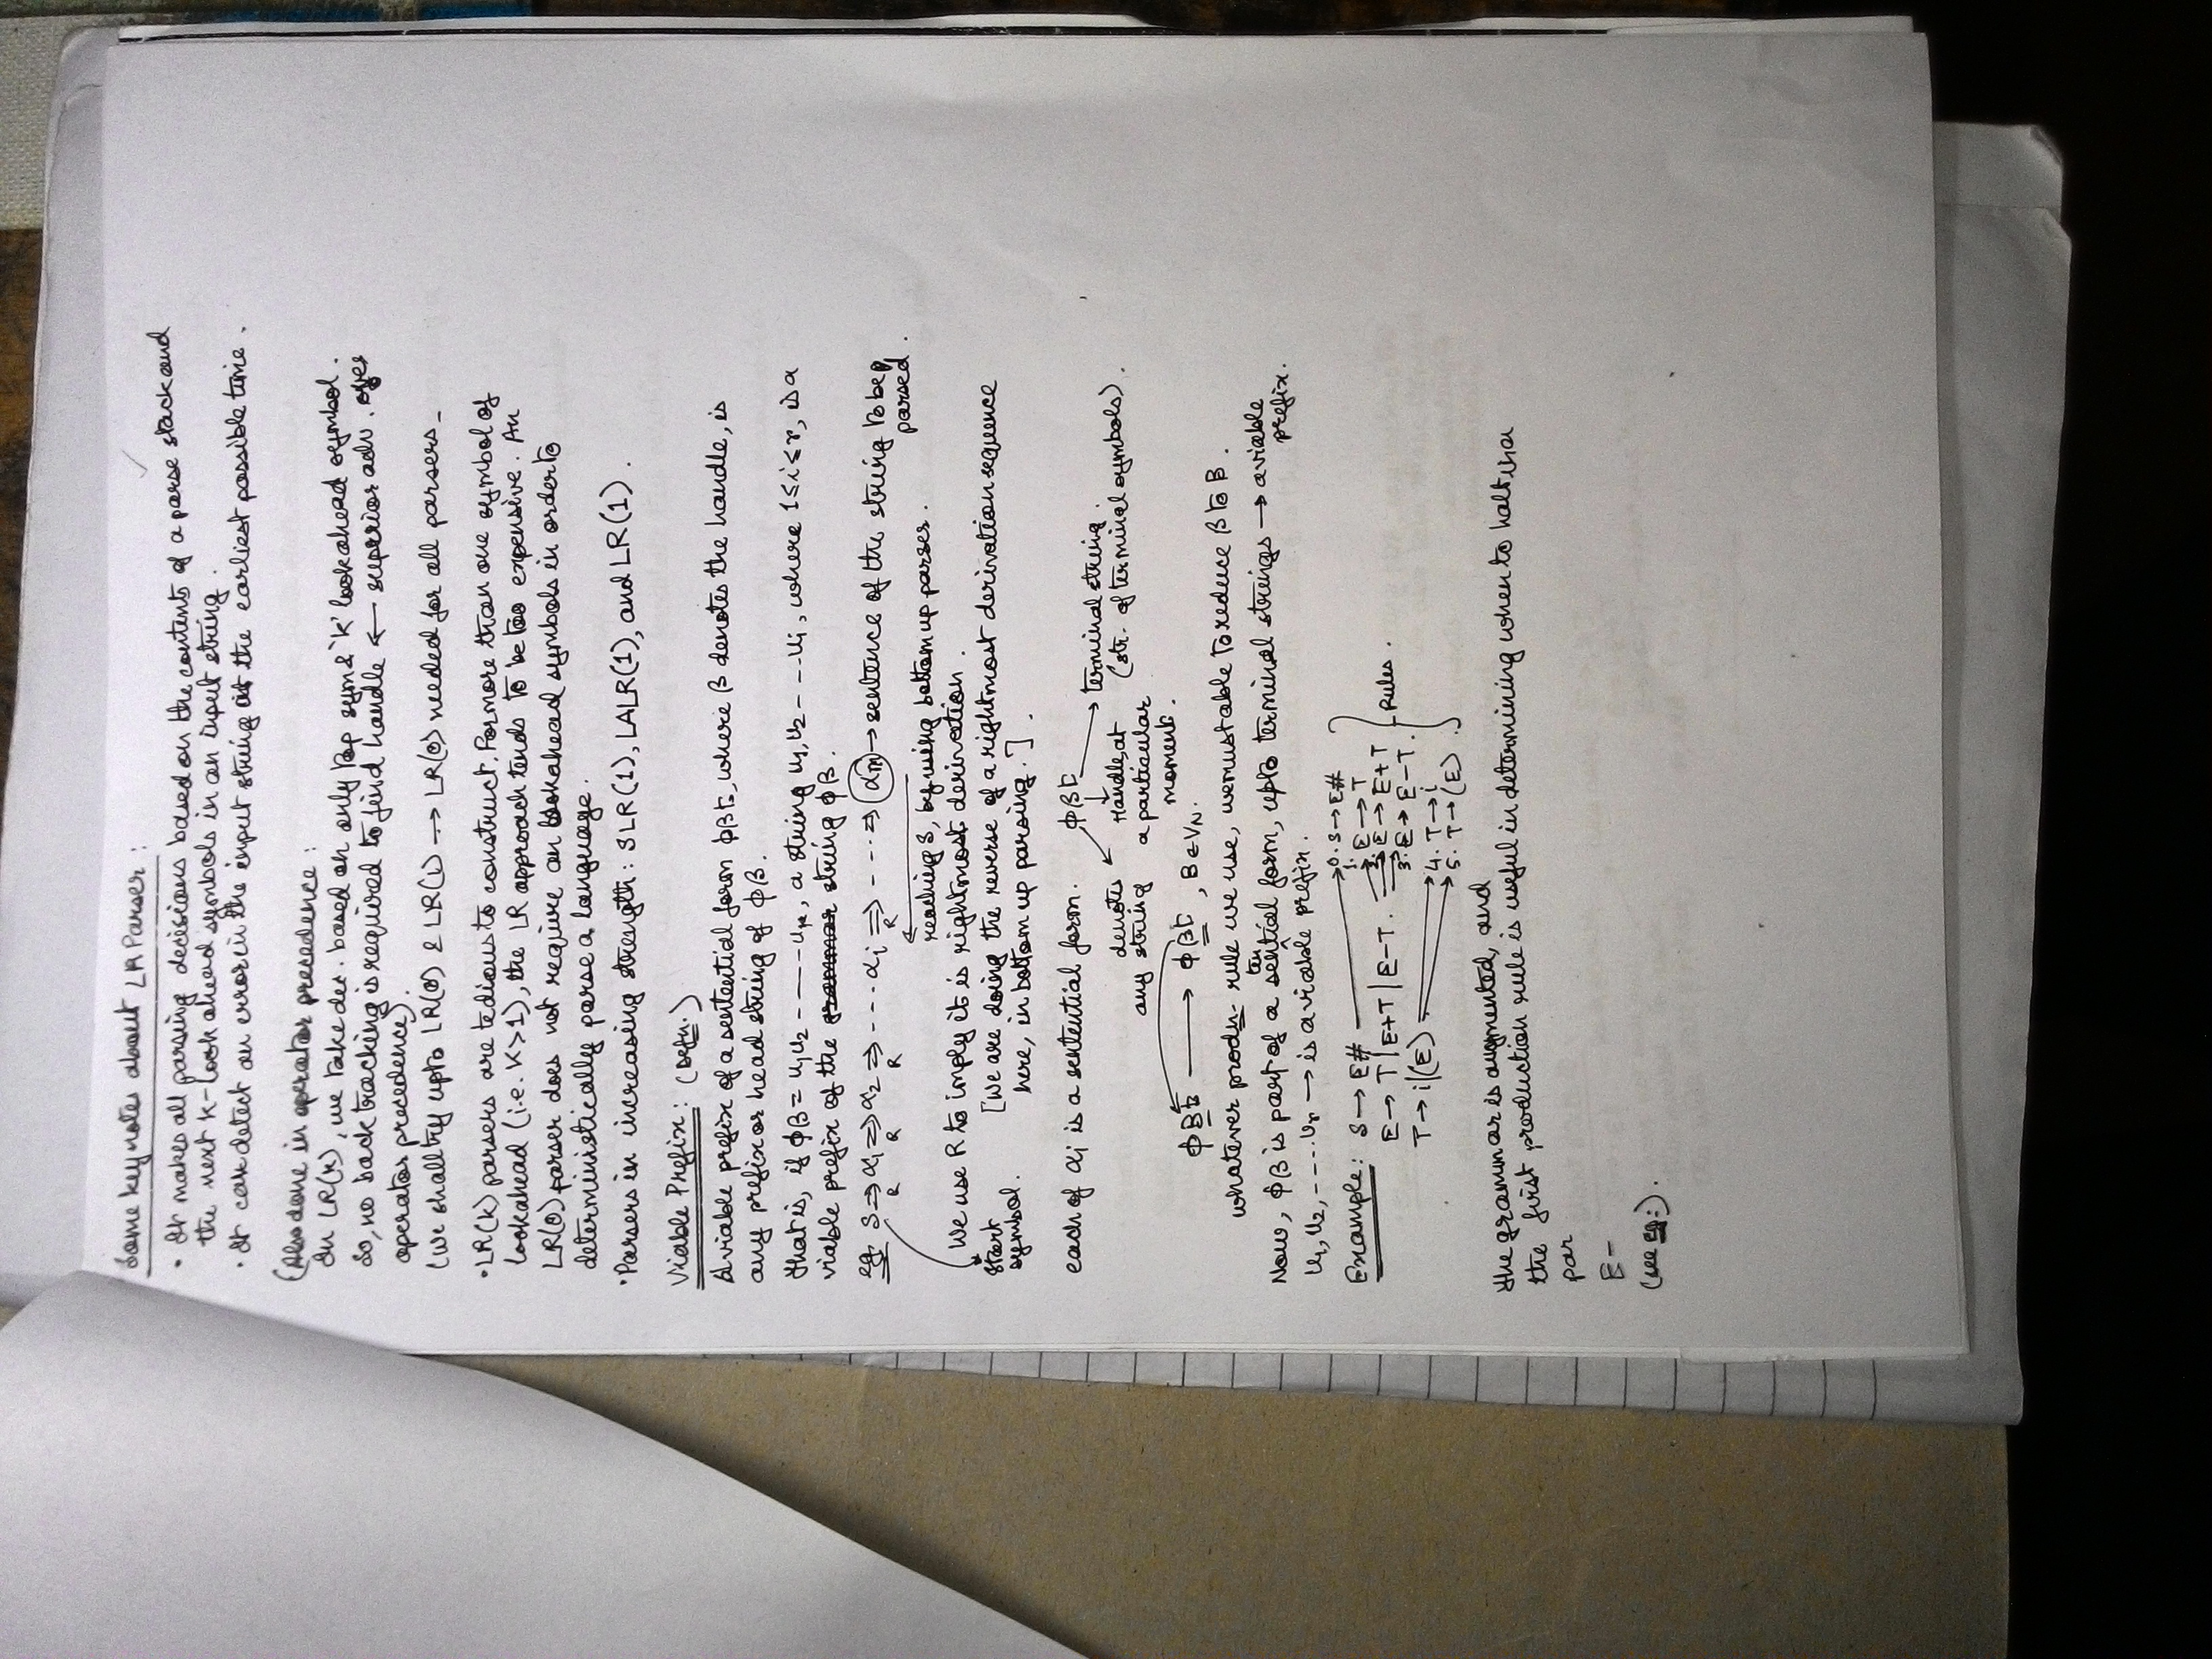 Some key notes about LR Parser :
• It makes all parsing decisions based on the contents of a parse stack and
the next k-look ahead symbols in an input string .
• It can detect an error in the input string at the earliest possible time .
(Also done in operator precedence :
In LR(k), we take dec. based on only top sym & 'k' lookahead symbol .
So, no back tracking is required to find handle ← superior adv. over
operator precedence).
(We shall try upto LR(0) & LR(1) → LR(0) needed for all parsers -
• LR(k) parsers are tedious to construct. For more than one symbol of
lookahead (i.e. K>1), the LR approach tends to be too expensive. An
LR(0) parser does not require an lookahead symbols in order to
deterministically parse a language .
• Parsers in increasing strength : SLR(1), LALR(1), and LR(1) .
Viable Prefix : (Defn.)
A viable prefix of a sentential form ϕβt, where β denotes the handle, is
any prefix or head string of ϕβ.
That is, if ϕβ = u₁u₂ ------ uᵣ, a string u₁,u₂ -- --uᵢ, where 1≤i≤r, is a
viable prefix of the grammar string ϕβ .
eg. S ⇒ α₁ ⇒ α₂ ⇒ --- αᵢ ⇒ - ... ⇒ αm → sentence of the string to be
R R R R
parsed .
reaching S, by using bottom up parser .
We use R to imply it is rightmost derivation .
start
symbol.
[We are doing the reverse of a rightmost derivation sequence
here, in bottom up parsing. ] .
each of αᵢ is a sentential form. ϕβt
denotes
any string
Handle, at
a particular
moment .
terminal string .
(str. of terminal symbols) .
ϕBt → ϕβt , B ∈ VN.
whatever produ. rule we use, we must able to reduce β to B .
Now, ϕβ is part of a sentential form, upto terminal strings → a viable
prefix.
u₁, u₂, ---- uᵣ → is a viable prefix .
Example : S → E# 0. S → E#
E → T | E+T | E-T . 1. E → T
2. E → E+T
3. E → E-T .
T → i|(E) 4. T → i
5. T → (E) .
Rules .
The grammar is augmented, and
the first production rule is useful in determining when to halt in a
par
E -
(see eg:) .